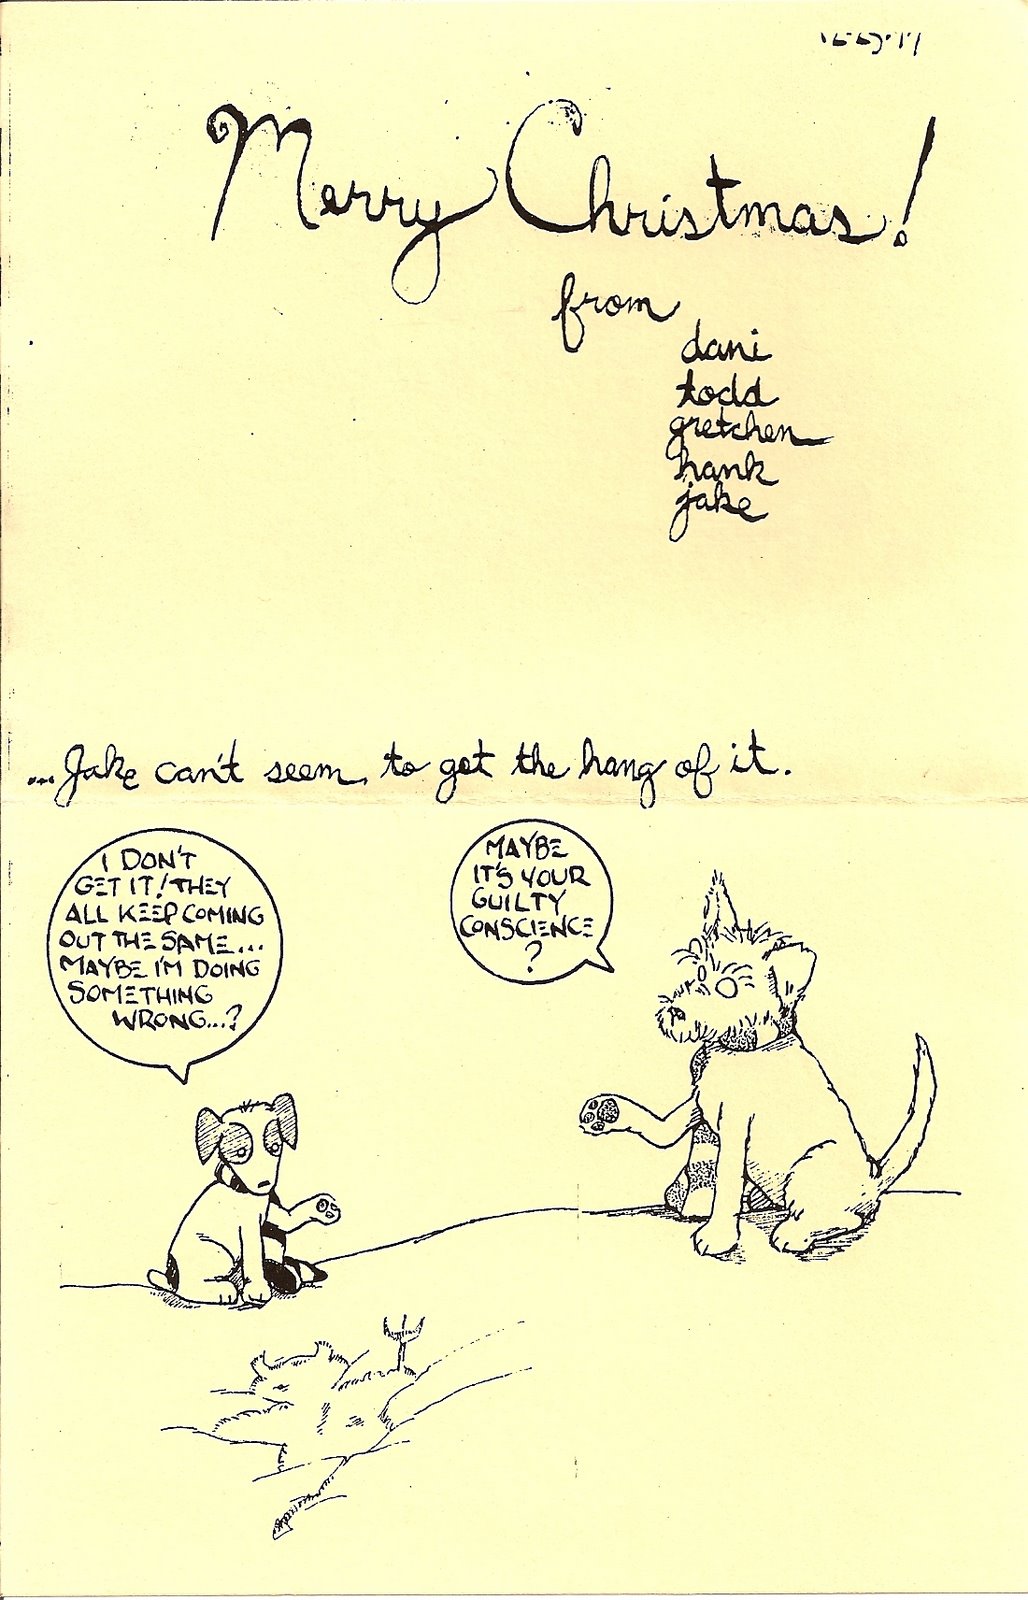 Merry Christmas!
from
dani
todd
gretchen
hank
jake
...Jake can't seem to get the hang of it.
I DON'T
GET IT! THEY
ALL KEEP COMING
OUT THE SAME...
MAYBE I'M DOING
SOMETHING
WRONG...?
MAYBE
IT'S YOUR
GUILTY
CONSCIENCE
?